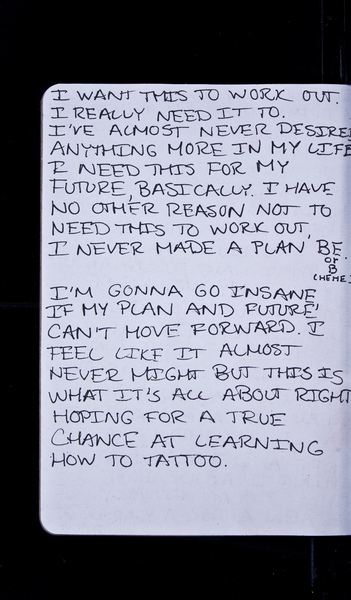 I WANT THIS TO WORK OUT.
I REALLY NEED IT TO.
I'VE ALMOST NEVER DESIRE
ANYTHING MORE IN MY LIFE
I NEED THIS FOR MY
FUTURE, BASICALLY. I HAVE
NO OTHER REASON NOT TO
NEED THIS TO WORK OUT,
I NEVER MADE A PLAN BE.
or
B
I'M GONNA GO INSANE
IF MY PLAN AND FUTURE'
CAN'T MOVE FORWARD. I
FEEL LIKE IT ALMOST
NEVER MIGHT BUT THIS IS
WHAT IT'S ALL ABOUT RIGHT
HOPING FOR A TRUE
CHANCE AT LEARNING
HOW TO TATTOO.